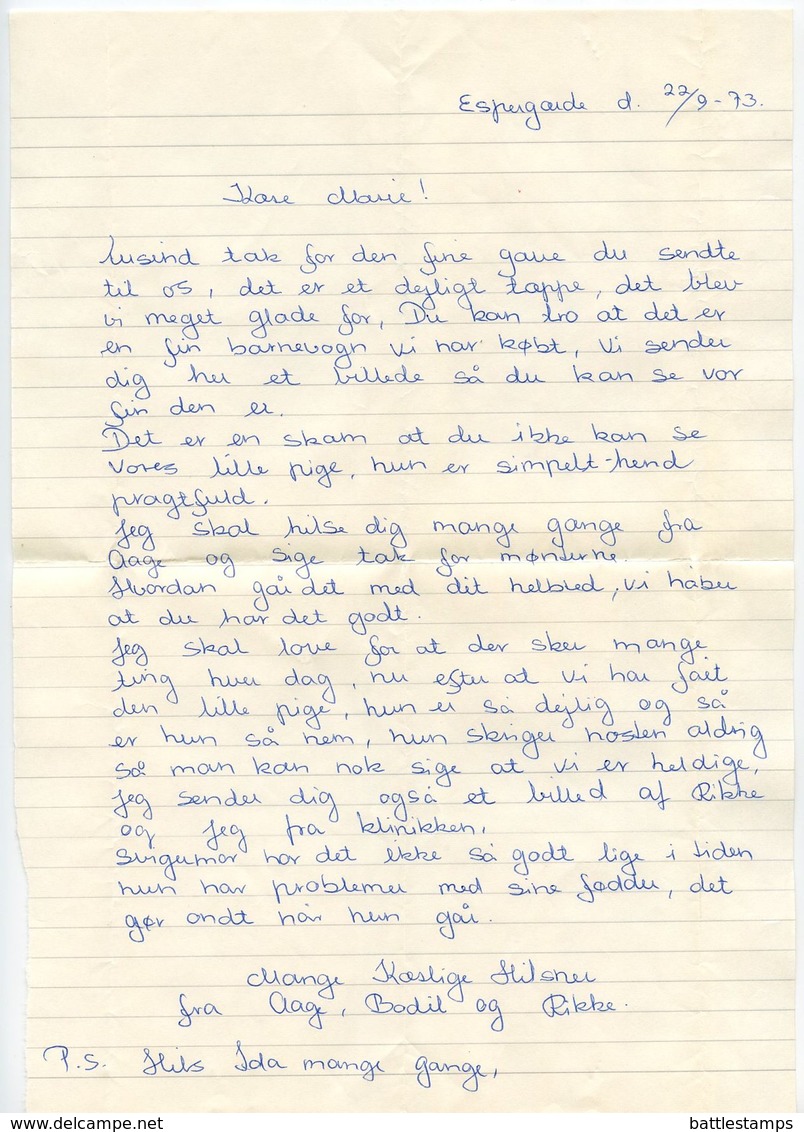 Espergærde d. 22/9-73.
Kære Marie!
Tusind tak for den fine gave du sendte
til os, det er et dejligt tæppe, det blev
vi meget glade for, Du kan tro at det er
en fin barnevogn vi har købt, vi sender
dig her et billede så du kan se vor
fin den er.
Det er en skam at du ikke kan se
vores lille pige, hun er simpelt-hend
pragtfuld.
Jeg skal hilse dig mange gange fra
Aage og sige tak for mønterne.
Hvordan går det med dit helbred, vi håber
at du har det godt.
Jeg skal love for at der sker mange
ting hver dag, nu efter at vi har fået
den lille pige, hun er så dejlig og så
er hun så nem, hun skriger næsten aldrig
så man kan nok sige at vi er heldige,
Jeg sender dig også et billed af Rikke
og jeg fra klinikken,
Svigermor har det ikke så godt lige i tiden
hun har problemer med sine fødder, det
gør ondt når hun går.
Mange Kærlige Hilsner
fra Aage, Bodil og Rikke.
P.S. Hils Ida mange gange,
battlestamps